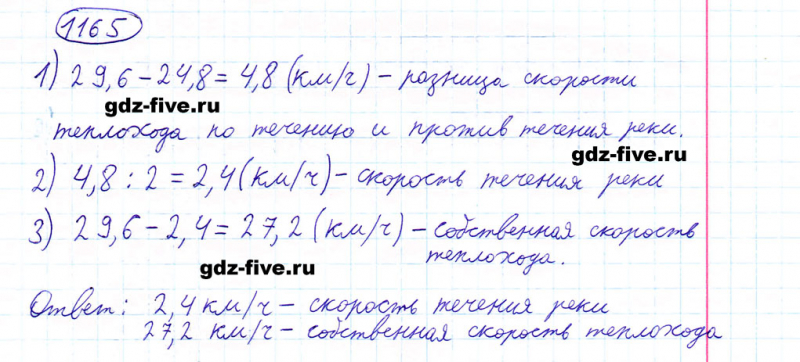 1165
1) 29,6 - 24,8 = 4,8 (км/ч) - разница скорости
gdz-five.ru
теплохода по течению и против течения реки.
gdz-five.ru
2) 4,8 : 2 = 2,4 (км/ч) - скорость течения реки
3) 29,6 - 2,4 = 27,2 (км/ч) - собственная скорость
теплохода.
gdz-five.ru
Ответ: 2,4 км/ч - скорость течения реки
27,2 км/ч - собственная скорость теплохода